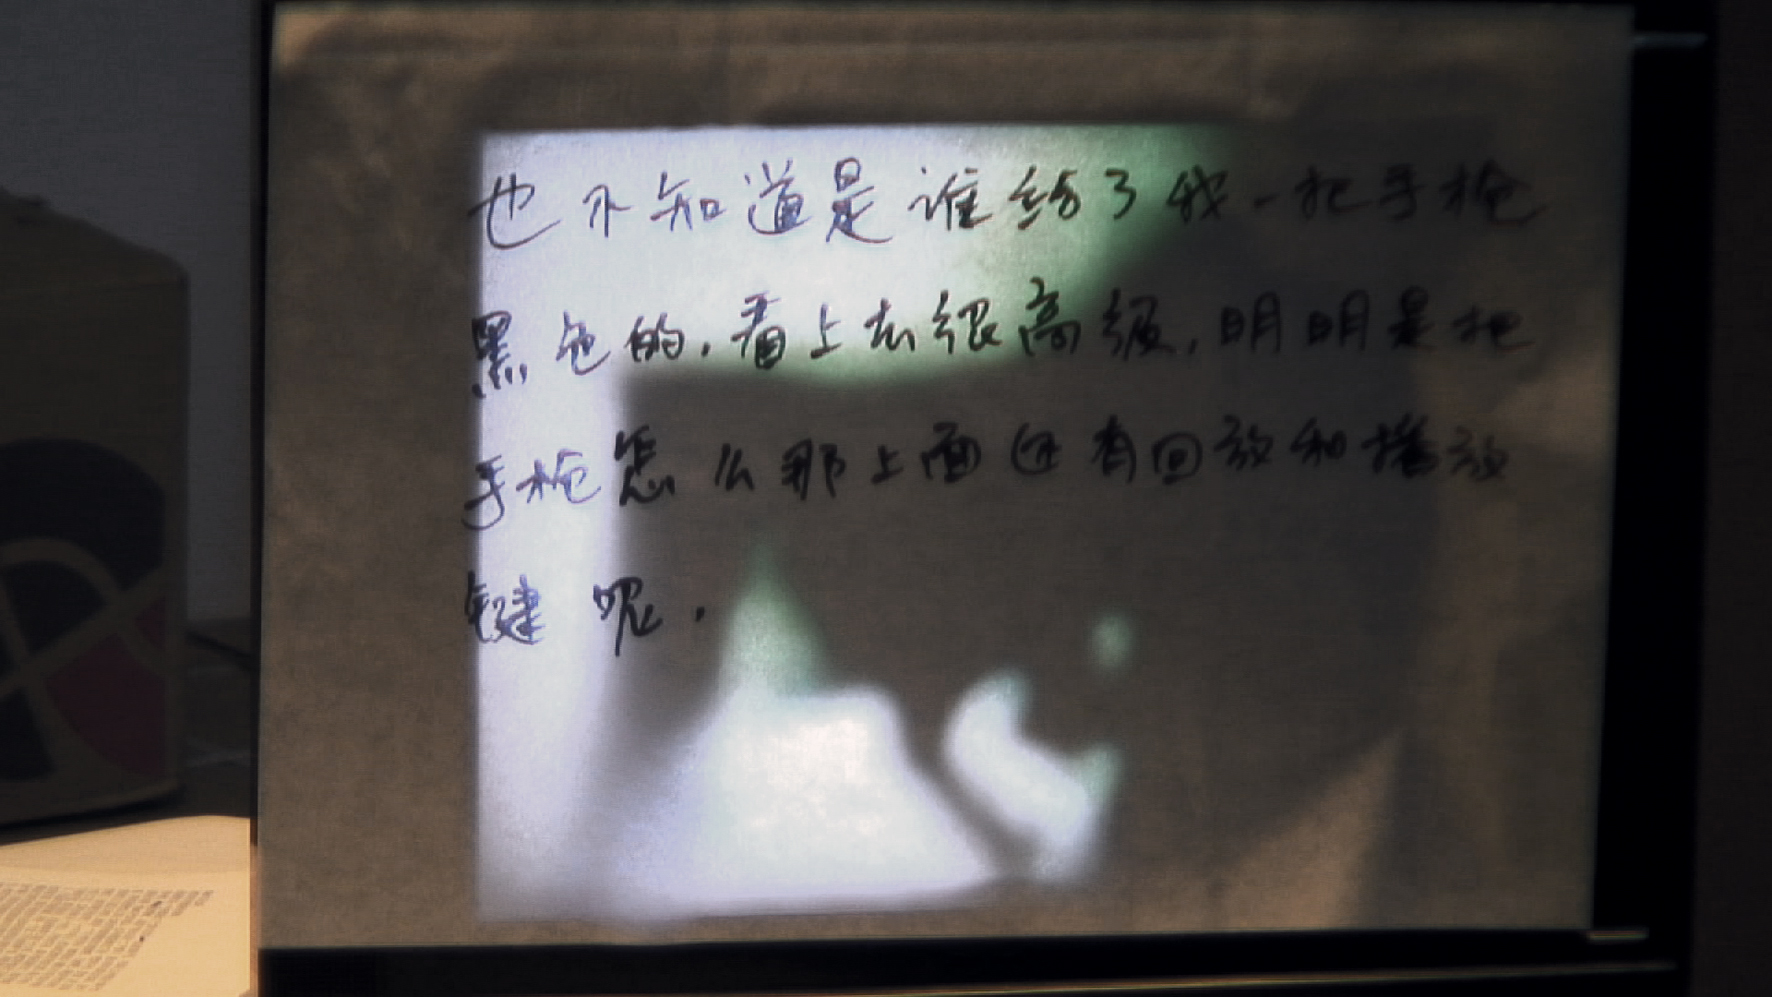 也不知道是谁给了我一把手枪
黑色的，看上去很高级，明明是把
手枪怎么那上面还有回放和播放
键呢．